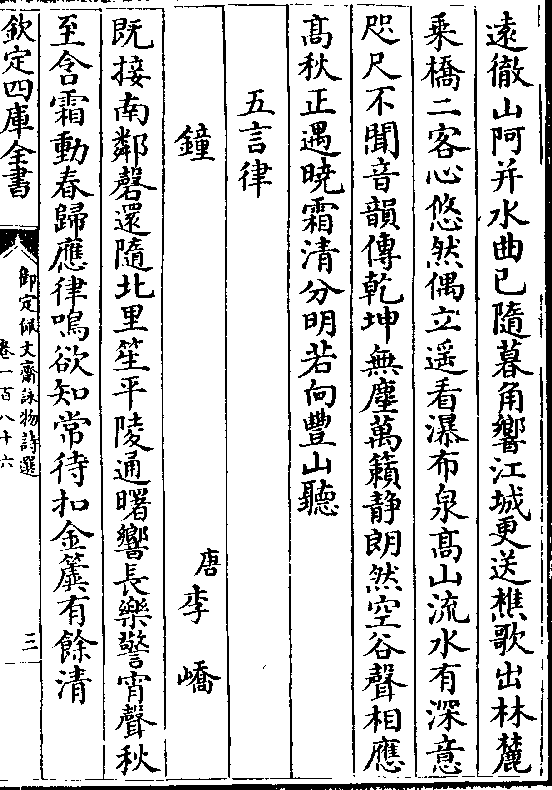 遠徹山阿并水曲已隨暮角響江城更送樵歌出林麓
乘橋二客心悠然偶立遥看瀑布泉髙山流水有深意
咫尺不聞音韻傳乾坤無塵萬籟静朗然空谷聲相應
髙秋正遇曉霜清分明若向豐山聽
五言律
鐘
唐李嶠
既接南鄰磬還隨北里笙平陵通曙響長樂警宵聲秋
至含霜動春歸應律鳴欲知常待扣金簴有餘清
欽定四庫全書
御定佩文齋詠物詩選
卷一百八十六
三